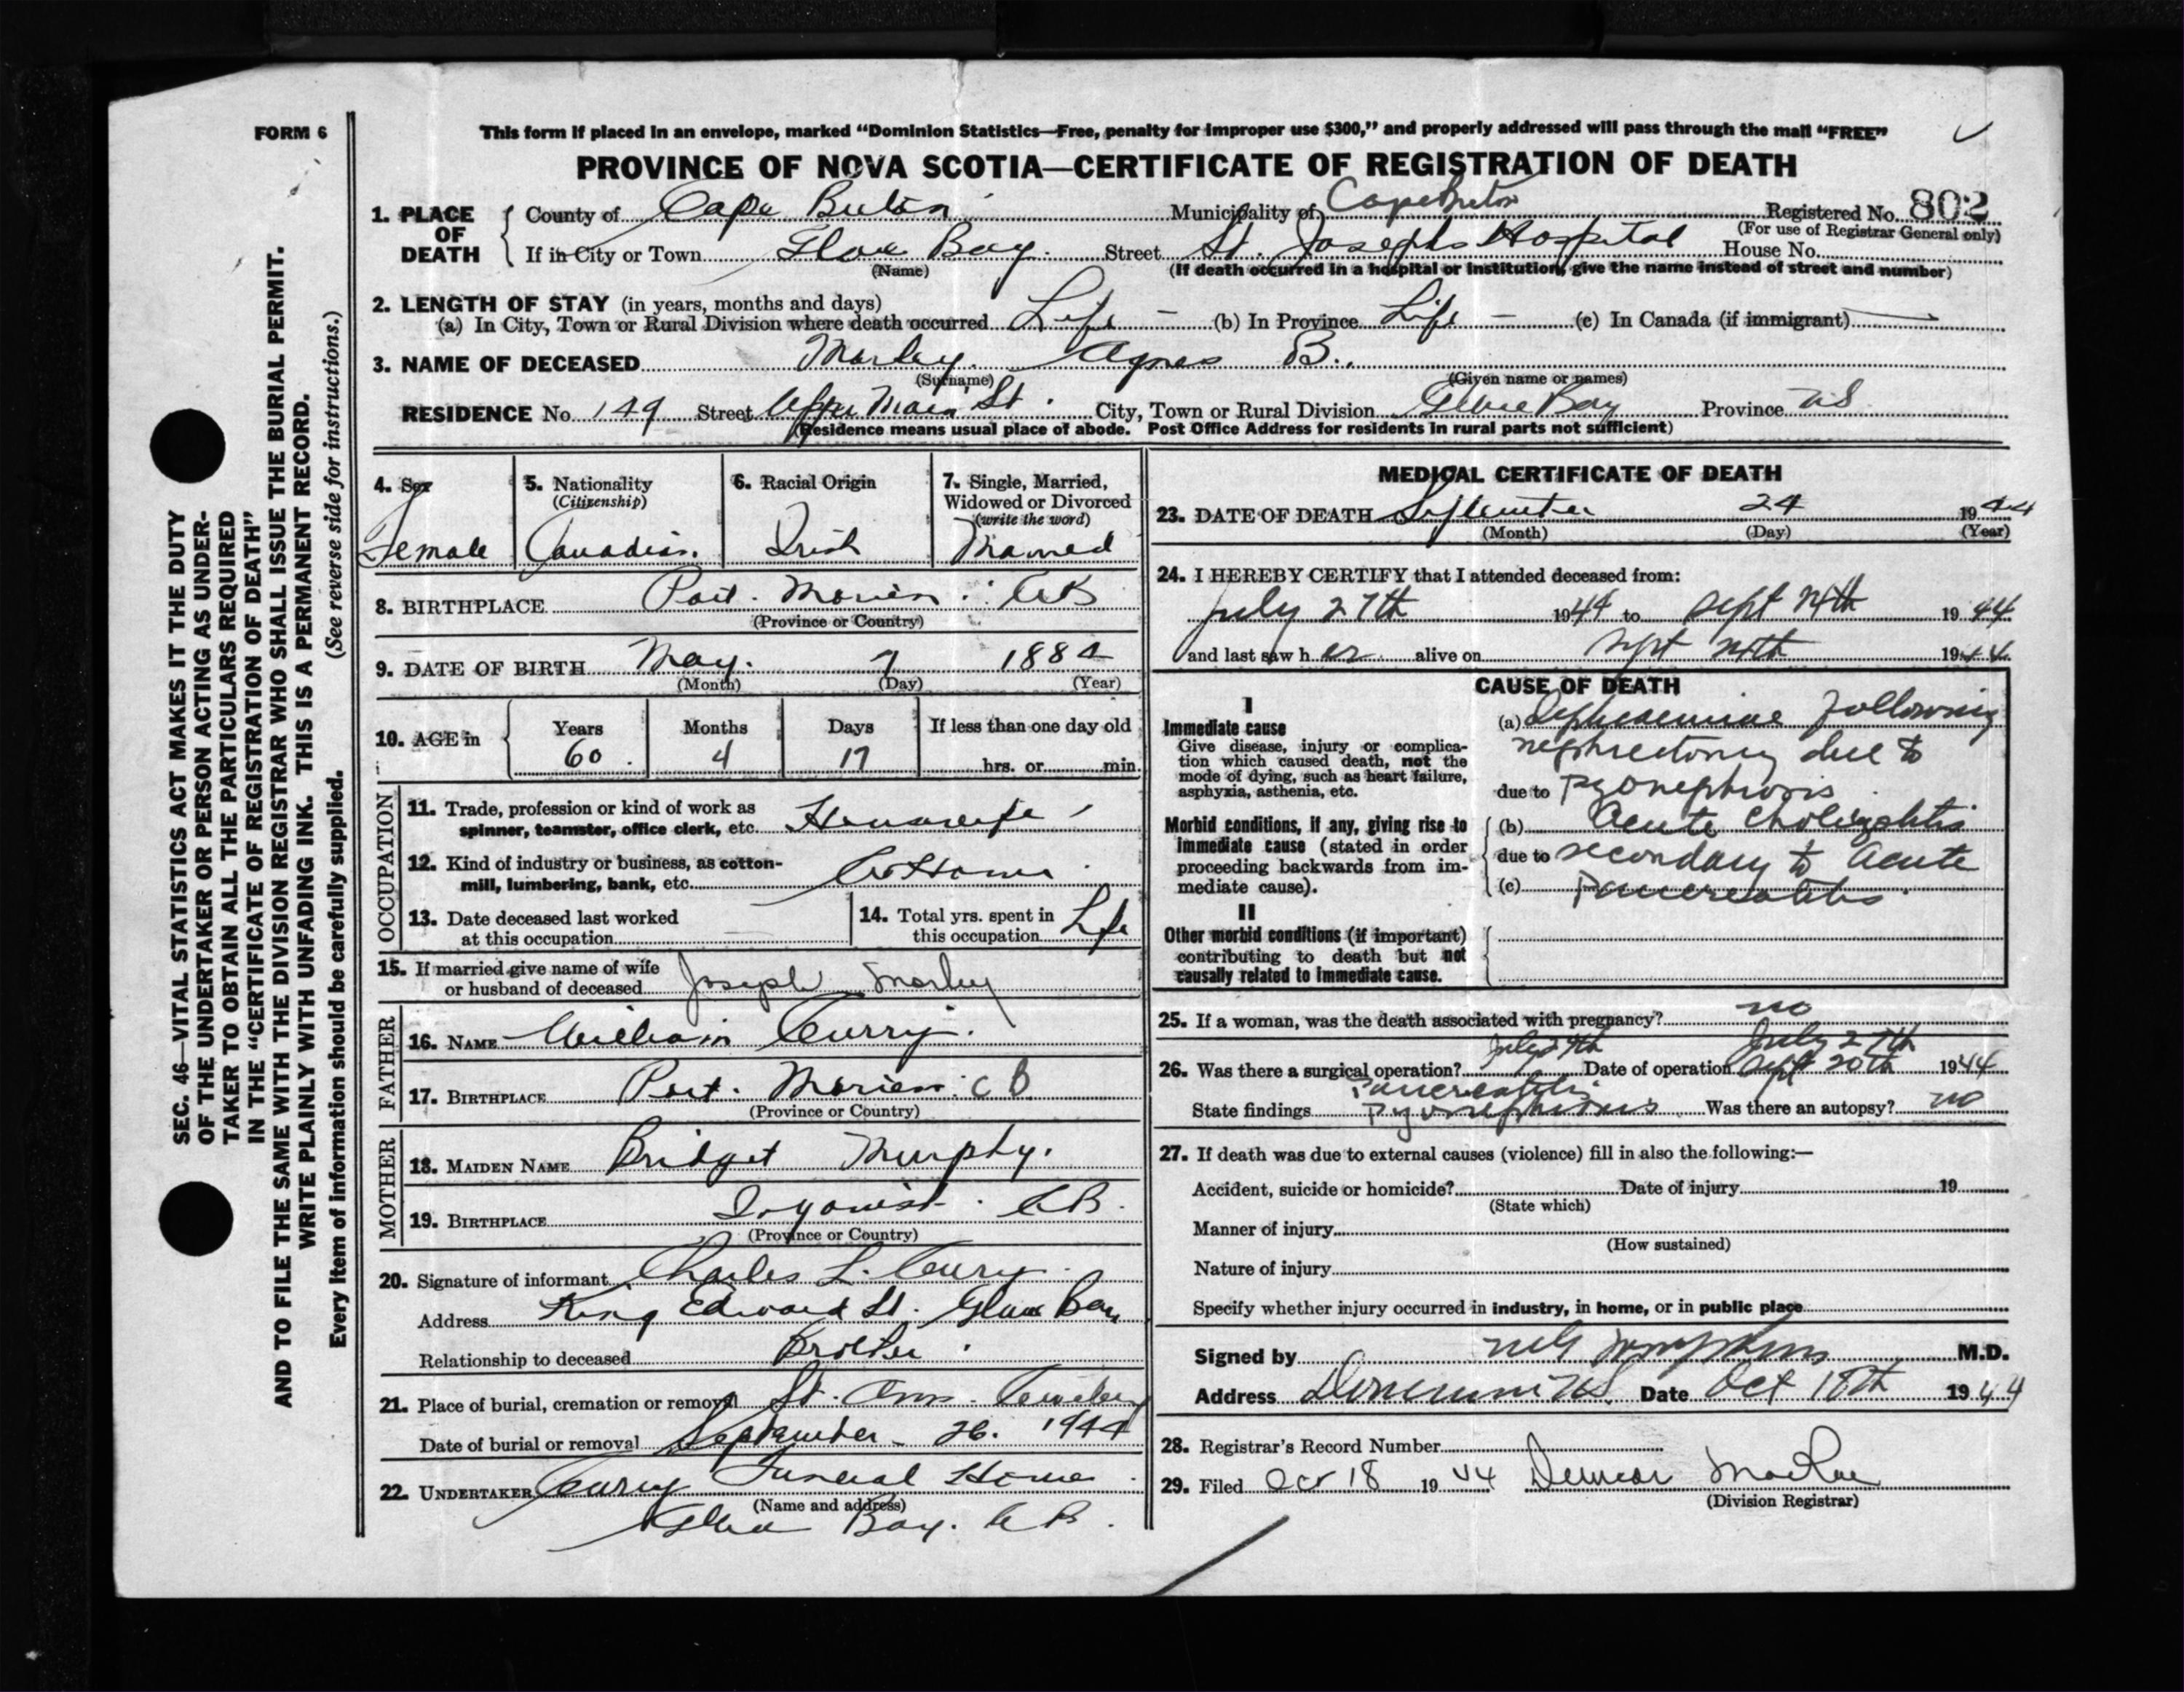 FORM 6
This form if placed in an envelope, marked “Dominion Statistics—Free, penalty for improper use $300,” and properly addressed will pass through the mail “FREE”
PROVINCE OF NOVA SCOTIA—CERTIFICATE OF REGISTRATION OF DEATH
1. PLACE OF DEATH County of Cape Breton Municipality of Cape Breton Registered No. 802
(For use of Registrar General only)
If in City or Town Glace Bay. Street St. Josephs Hospital House No.
(Name) (If death occurred in a hospital or institution, give the name instead of street and number)
2. LENGTH OF STAY (in years, months and days)
(a) In City, Town or Rural Division where death occurred Life — (b) In Province Life — (c) In Canada (if immigrant) —
3. NAME OF DECEASED Morley. Agnes B.
(Surname) (Given name or names)
RESIDENCE No. 149 Street Upper Main St. City, Town or Rural Division Glace Bay Province NS
(Residence means usual place of abode. Post Office Address for residents in rural parts not sufficient)
4. Sex
Female
5. Nationality
(Citizenship)
Canadian.
6. Racial Origin
Irish
7. Single, Married,
Widowed or Divorced
(write the word)
Married
8. BIRTHPLACE Port. Morien. CB
(Province or Country)
9. DATE OF BIRTH May. 7 1884
(Month) (Day) (Year)
10. AGE in Years Months Days If less than one day old
60 4 17 hrs. or min.
OCCUPATION
11. Trade, profession or kind of work as
spinner, teamster, office clerk, etc. Housewife
12. Kind of industry or business, as cotton-
mill, lumbering, bank, etc. At Home
13. Date deceased last worked
at this occupation
14. Total yrs. spent in
this occupation Life
15. If married give name of wife
or husband of deceased Joseph Morley
FATHER
16. NAME William Curry.
17. BIRTHPLACE Port. Morien. C B
(Province or Country)
MOTHER
18. MAIDEN NAME Bridget Murphy.
19. BIRTHPLACE C.B.
(Province or Country)
20. Signature of informant Charles L. Curry
Address King Edward St. Glace Bay
Relationship to deceased Brother.
21. Place of burial, cremation or removal St. Anns. Cemetery
Date of burial or removal September 26. 1944
22. UNDERTAKER Curry Funeral Home
(Name and address)
Glace Bay. C B.
MEDICAL CERTIFICATE OF DEATH
23. DATE OF DEATH September 24 1944
(Month) (Day) (Year)
24. I HEREBY CERTIFY that I attended deceased from:
July 27th 1944 to Sept 24th 1944
and last saw her alive on Sept 24th 1944
CAUSE OF DEATH
I
Immediate cause
Give disease, injury or complica-
tion which caused death, not the
mode of dying, such as heart failure,
asphyxia, asthenia, etc.
(a) Septicaemia following
nephrectomy due to
due to Pyonephrosis
Morbid conditions, if any, giving rise to
immediate cause (stated in order
proceeding backwards from im-
mediate cause).
(b) Acute Cholecystitis
due to secondary to Acute
(c) Pancreatitis.
II
Other morbid conditions (if important)
contributing to death but not
causally related to immediate cause.
25. If a woman, was the death associated with pregnancy? no
July 27th July 27th
26. Was there a surgical operation? Date of operation Sept 20th 1944
Pancreatitis
State findings Pyonephrosis Was there an autopsy? no
27. If death was due to external causes (violence) fill in also the following:—
Accident, suicide or homicide? Date of injury 19
(State which)
Manner of injury
(How sustained)
Nature of injury
Specify whether injury occurred in industry, in home, or in public place
Signed by Tompkins M.D.
Address Dominion NS. Date Oct 18th 1944
28. Registrar's Record Number
29. Filed Oct 18 1944 MacRae
(Division Registrar)
SEC. 46—VITAL STATISTICS ACT MAKES IT THE DUTY
OF THE UNDERTAKER OR PERSON ACTING AS UNDER-
TAKER TO OBTAIN ALL THE PARTICULARS REQUIRED
IN THE “CERTIFICATE OF REGISTRATION OF DEATH”
AND TO FILE THE SAME WITH THE DIVISION REGISTRAR WHO SHALL ISSUE THE BURIAL PERMIT.
WRITE PLAINLY WITH UNFADING INK. THIS IS A PERMANENT RECORD.
Every item of information should be carefully supplied. (See reverse side for instructions.)